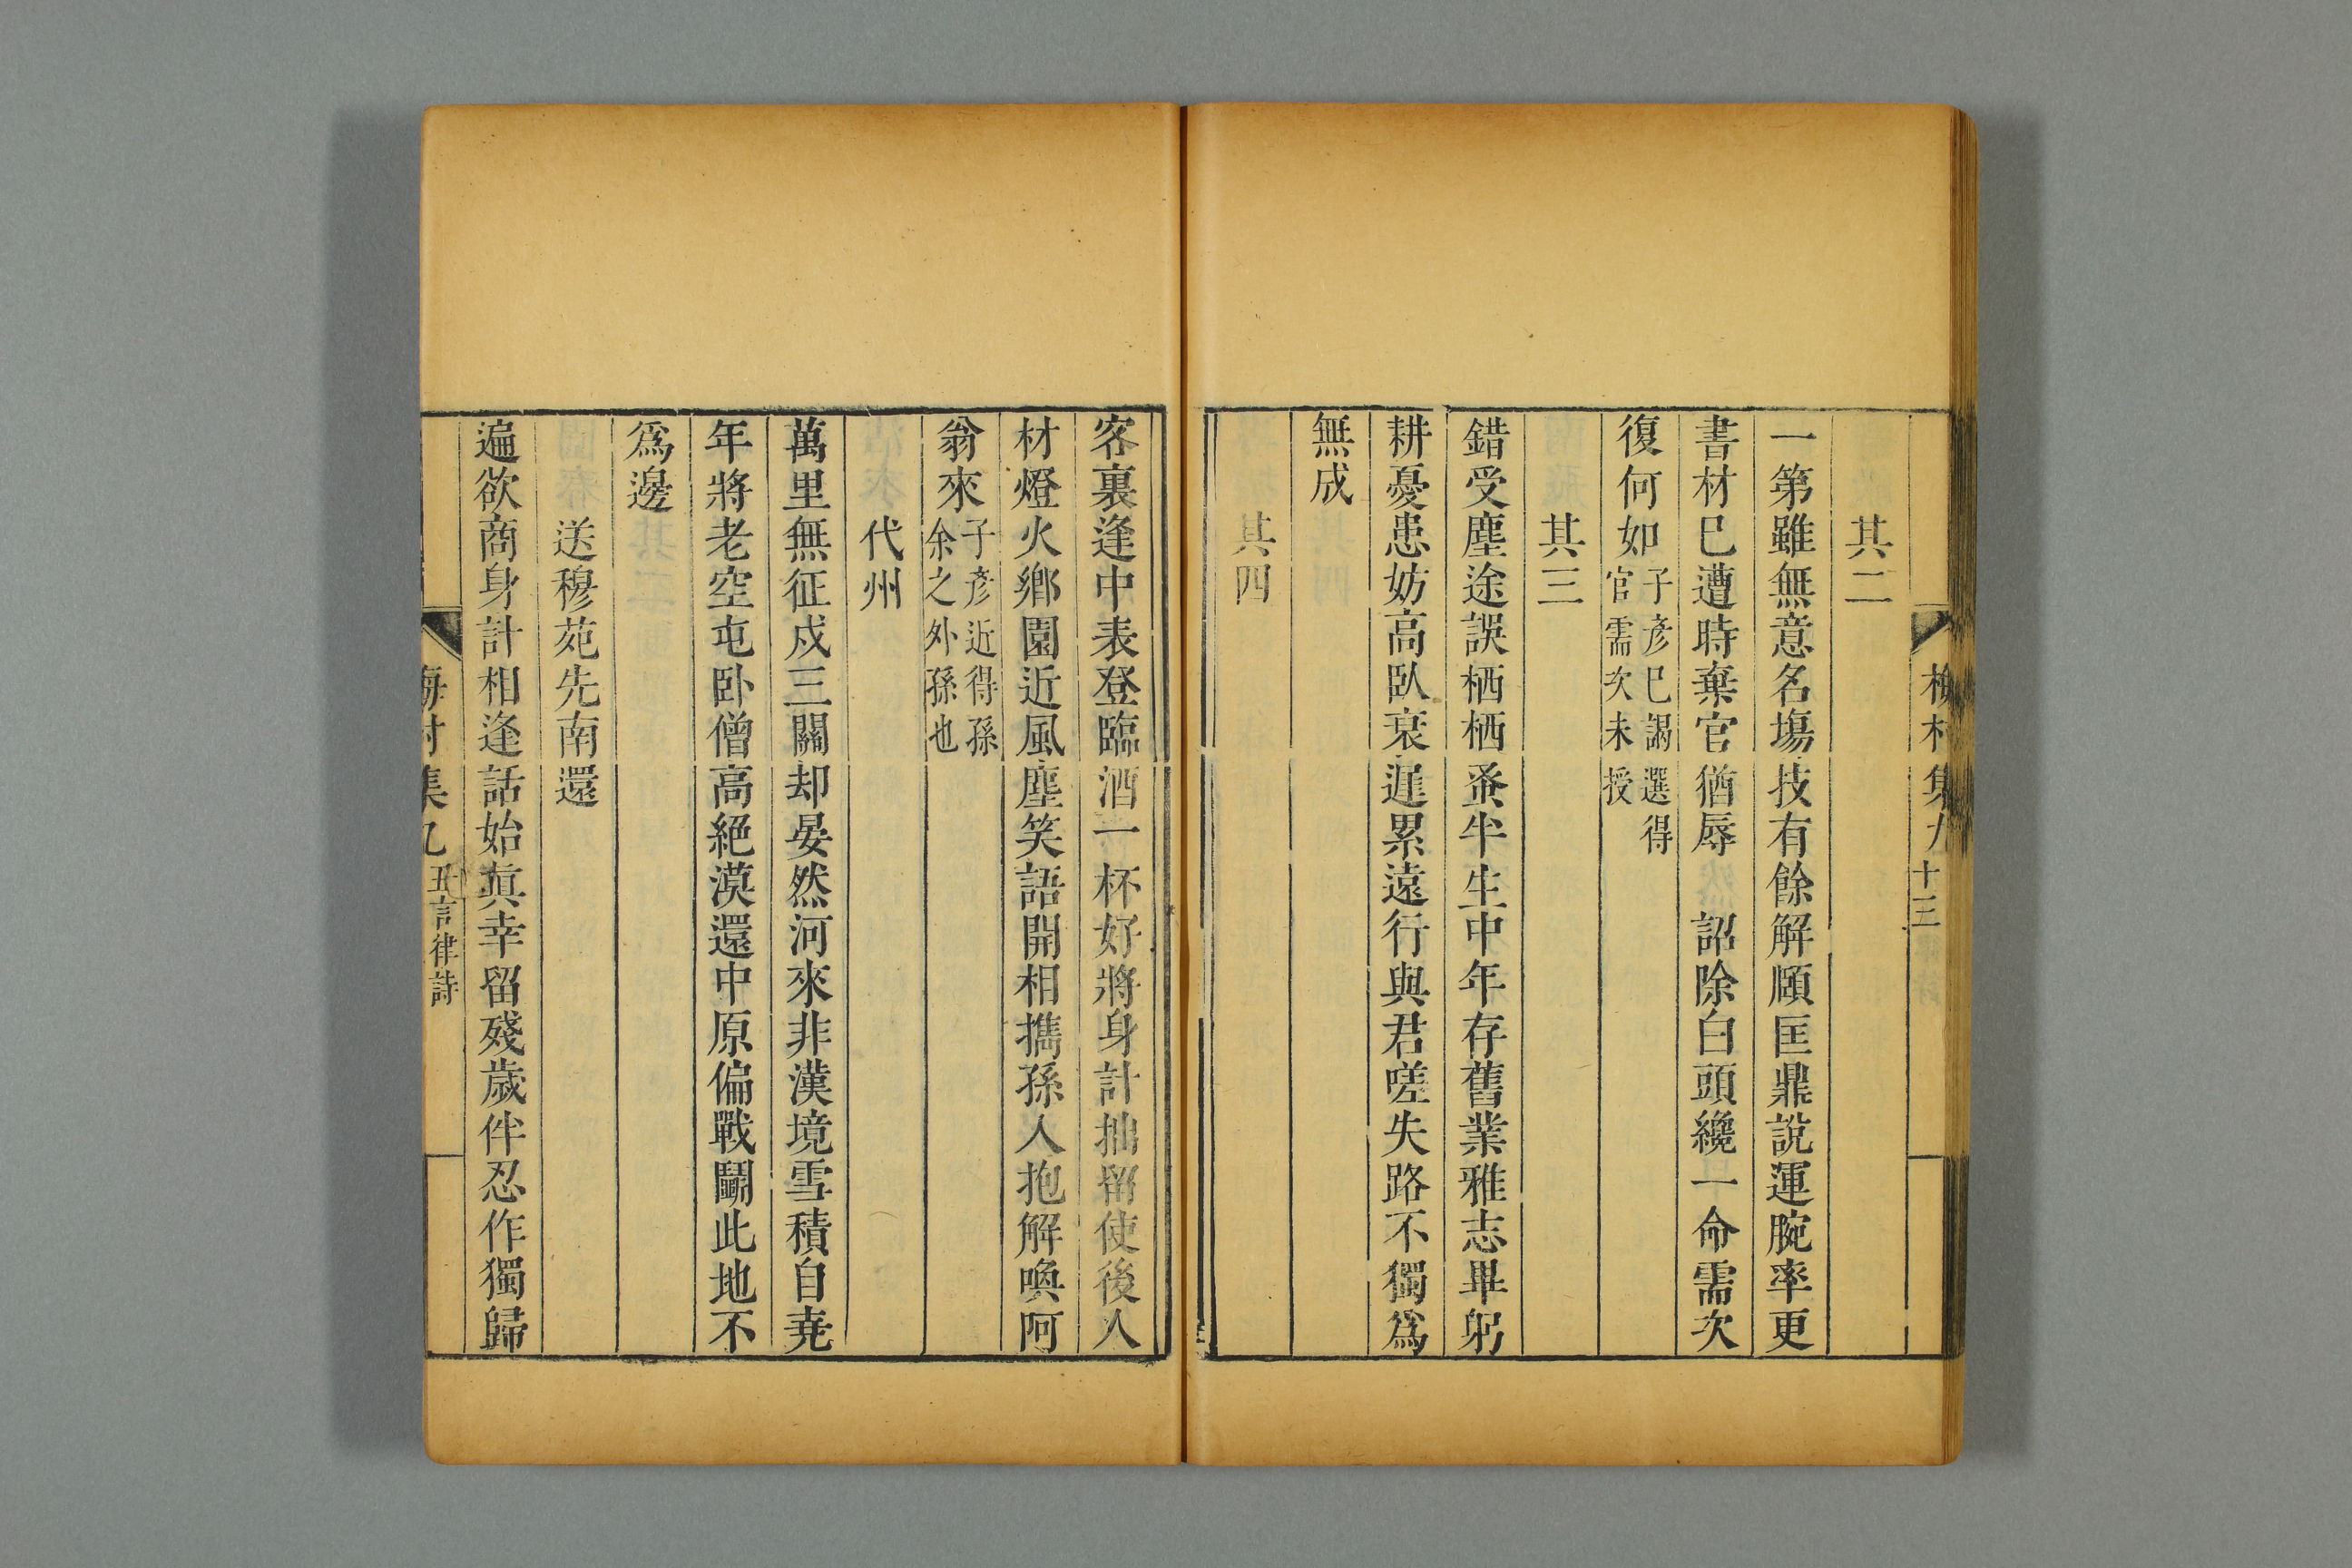 梅村集九
十三
其二
一第雖無意名塲技有餘解頤匡鼎說運腕率更
書材巳遭時棄官猶辱　詔除白頭纔一命需次
復何如子彥巳謁選得
官需次未授
其三
錯受塵途誤栖栖蚤半生中年存舊業雅志畢躬
耕憂患妨高臥衰遲累遠行與君嗟失路不獨爲
無成
其四
客裏逢中表登臨酒一杯好將身計拙留使後人
材燈火鄉園近風塵笑語開相攜孫入抱解喚阿
翁來子彥近得孫
余之外孫也
代州
萬里無征戍三關却晏然河來非漢境雪積自堯
年將老空屯臥僧高絕漠還中原偏戰鬭此地不
爲邊
送穆苑先南還
遍欲商身計相逢話始眞幸留殘歲伴忍作獨歸
梅村集九
五言律詩